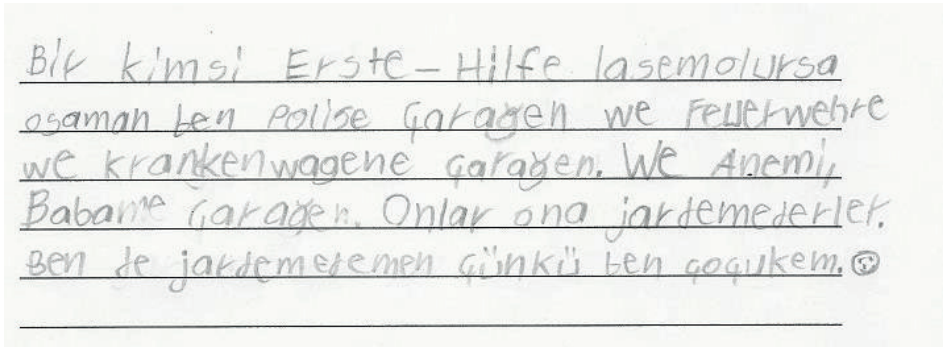 Bir kimsi Erste-Hilfe lasemolursa
osaman ben Polise çarağen we Feuerwehre
we krankenwagene çarağen. We Anemi,
Babame çarağen. Onlar ona jardemederler.
Ben de jardemedemen çünkü ben çoçukem. ☺